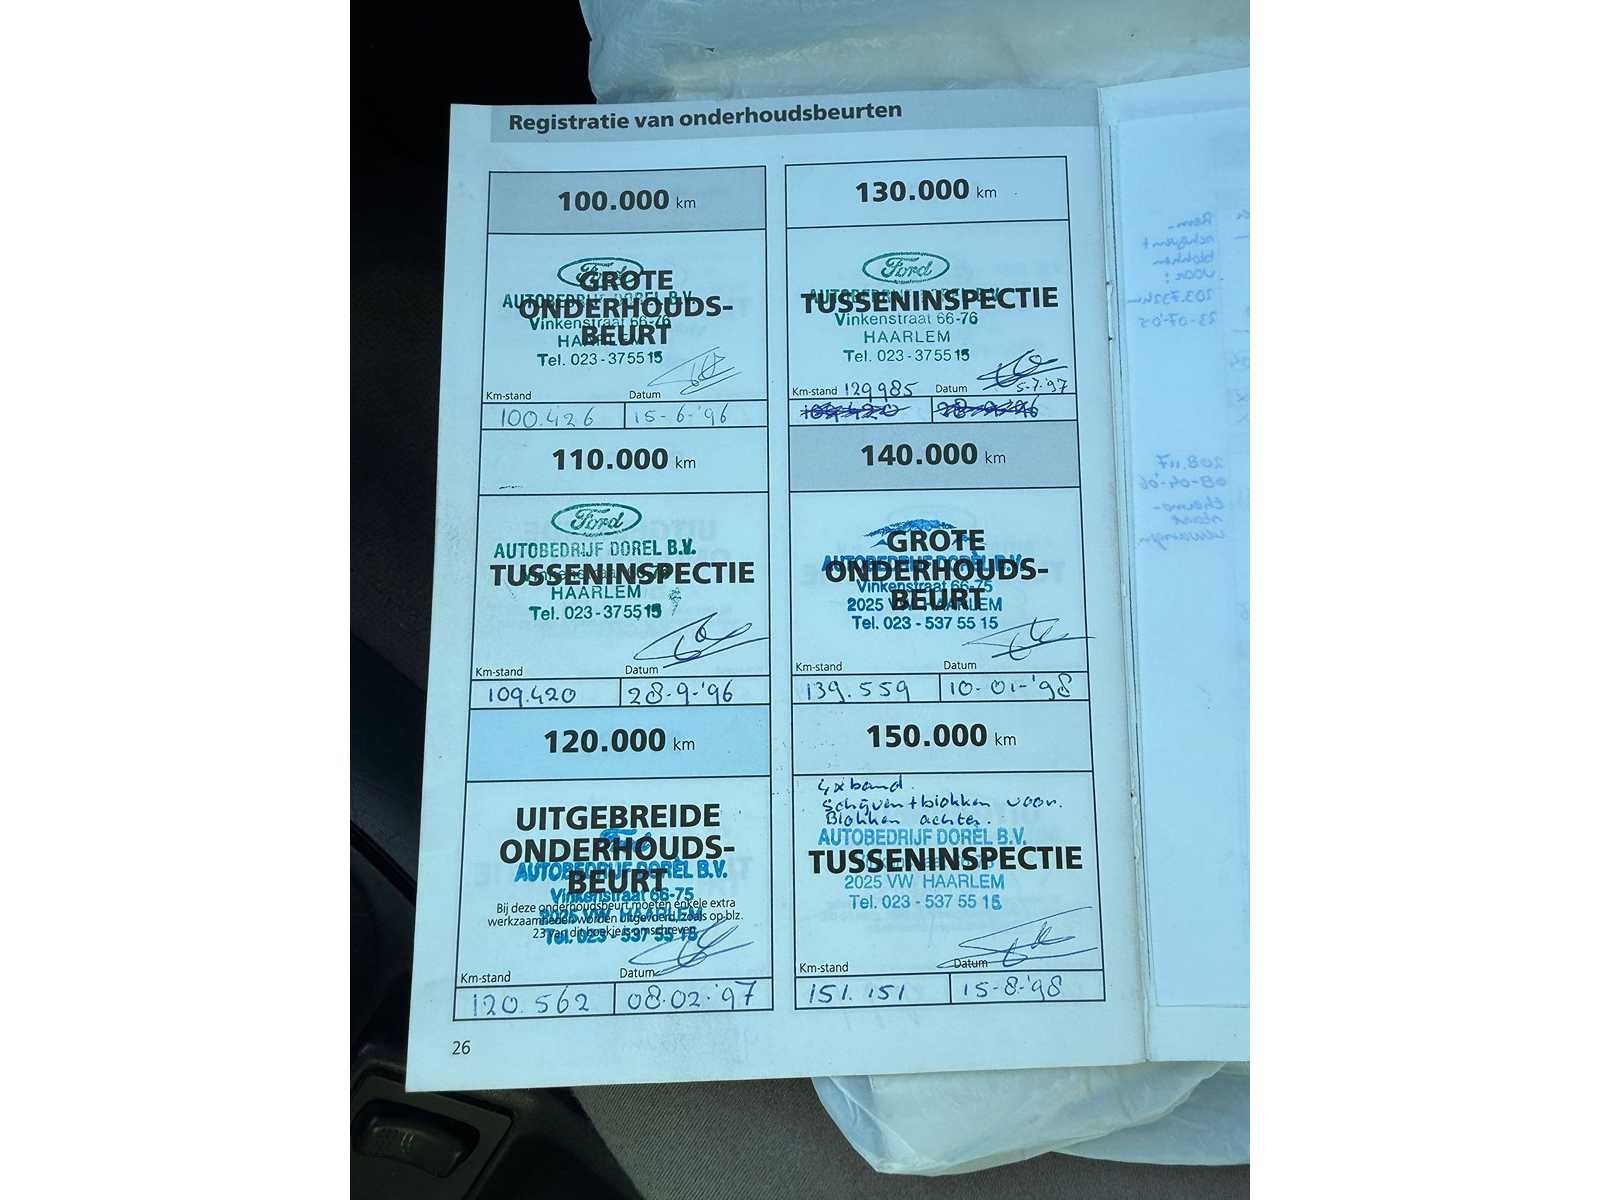 Registratie van onderhoudsbeurten
100.000 km
Ford
GROTE
AUTOBEDRIJF DOREL B.V.
ONDERHOUDS-
Vinkenstraat 66-76
BEURT
HAARLEM
Tel. 023-375515
Km-stand Datum
100.426 15-6-'96
110.000 km
Ford
AUTOBEDRIJF DOREL B.V.
TUSSENINSPECTIE
Vinkenstraat 66-76
HAARLEM
Tel. 023-375515
Km-stand Datum
109.420 28-9-'96
120.000 km
UITGEBREIDE
Ford
ONDERHOUDS-
AUTOBEDRIJF DOREL B.V.
BEURT
Vinkenstraat 66-75
Bij deze onderhoudsbeurt moeten enkele extra
2025 VW HAARLEM
werkzaamheden worden uitgevoerd, zoals op blz.
23 van dit boekje is omschreven.
Tel. 023-537 55 15
Km-stand Datum
120.562 08.02.'97
130.000 km
Ford
AUTOBEDRIJF DOREL B.V.
TUSSENINSPECTIE
Vinkenstraat 66-76
HAARLEM
Tel. 023-375515
Km-stand 129985 Datum 5-7-'97
109.420 28-9-'96
140.000 km
GROTE
AUTOBEDRIJF DOREL B.V.
ONDERHOUDS-
Vinkenstraat 66-75
BEURT
2025 VW HAARLEM
Tel. 023-537 55 15
Km-stand Datum
139.559 10-01-'98
150.000 km
4x band.
Schijven+blokken voor.
Blokken achter.
AUTOBEDRIJF DOREL B.V.
TUSSENINSPECTIE
2025 VW HAARLEM
Tel. 023-537 55 15
Km-stand Datum
151.151 15-8-'98
26